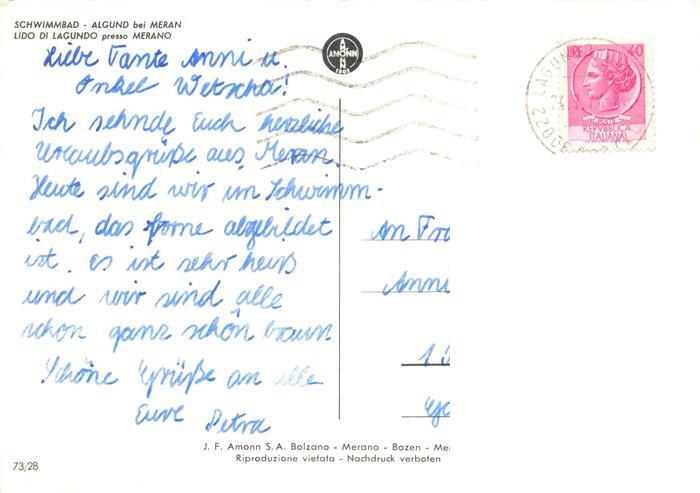 SCHWIMMBAD - ALGUND bei MERAN
LIDO DI LAGUNDO presso MERANO
Liebe Tante Anni u.
Onkel Wetscha!
Ich sehnde Euch herzliche
Urlaubsgrüße aus Meran.
Heute sind wir im Schwimm-
bad, das forne abgebildet
ist. es ist sehr heiß
und wir sind alle
schon ganz schön braun
Schöne Grüße an alle
Eure Petra
AMONN
1802
LIRE 40
REPVBBLICA
ITALIANA
An Fra
Anni
J. F. Amonn S.A. Bolzano - Merano - Bozen - Me
Riproduzione vietata - Nachdruck verboten
73/28